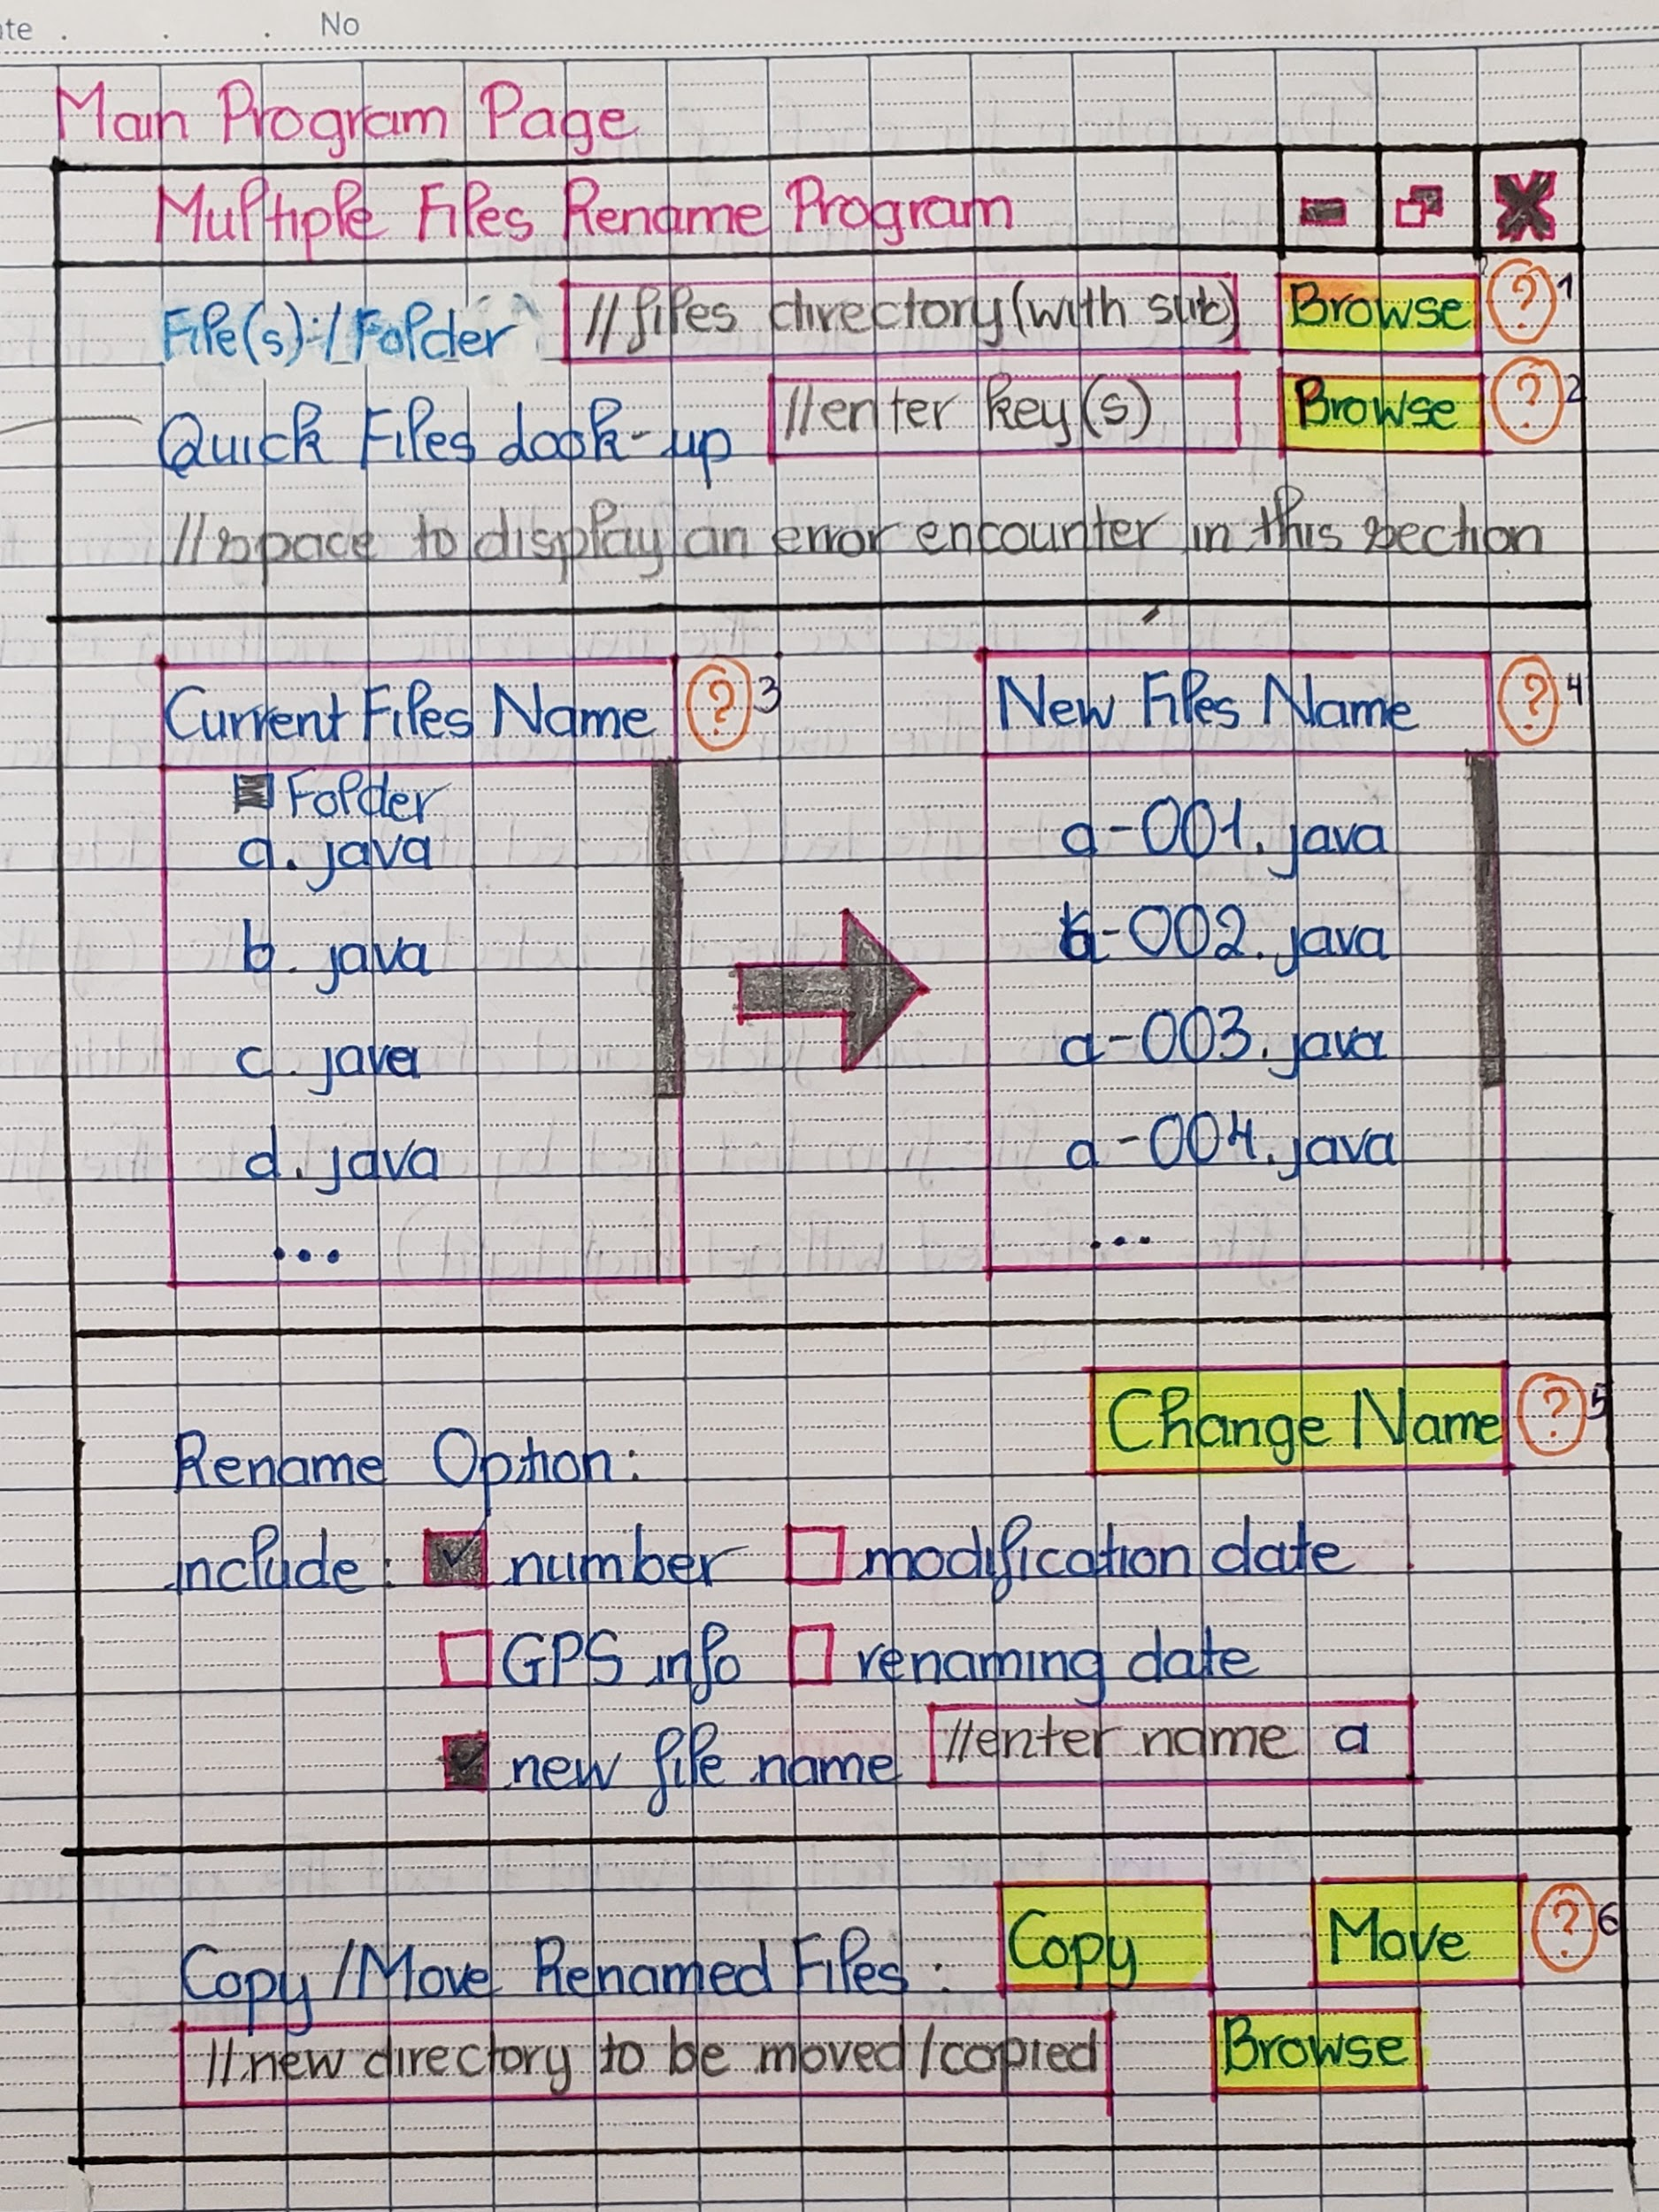 ate . . . No
Main Program Page
Multiple Files Rename Program
File(s):/Folder //files directory(with sub) Browse ? 1
Quick Files Look-up //enter key(s) Browse ? 2
//space to display an error encounter in this section
Current Files Name ? 3 New Files Name ? 4
Folder
a.java a-001.java
b.java a-002.java
c.java a-003.java
d.java a-004.java
... ...
Change Name ? 5
Rename Option:
include: number modification date
GPS info renaming date
new file name //enter name a
Copy/Move Renamed Files: Copy Move ? 6
//new directory to be moved/copied Browse